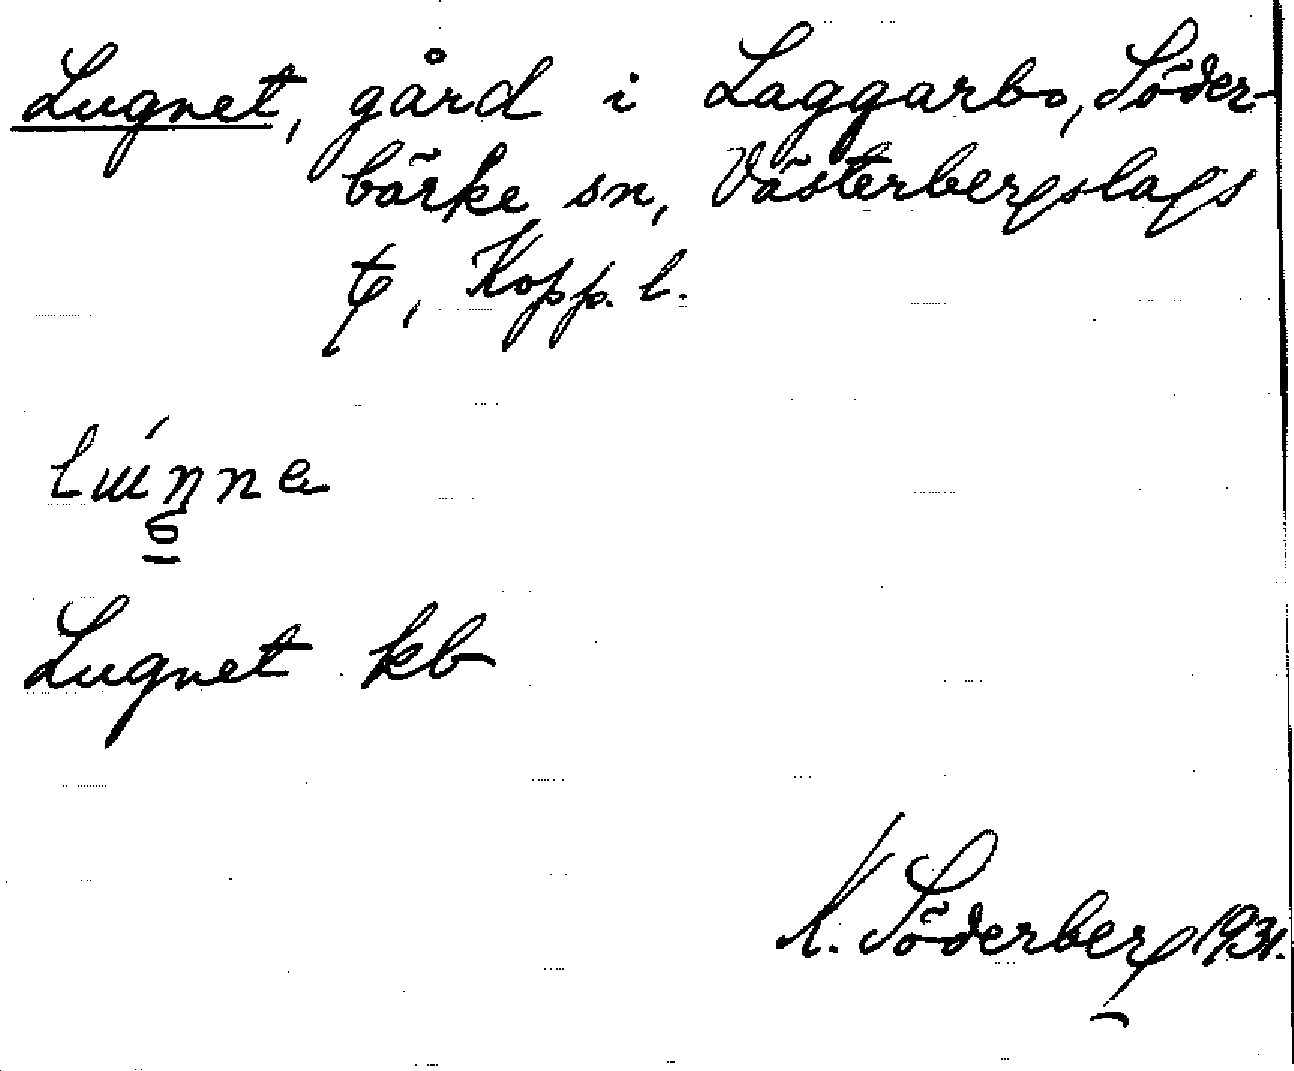 Lugnet, gård i Laggarbo, Söder-
bärke sn, Västerbergslags
Kopp. l.
Lugnet kb
K. Söderberg 1931.